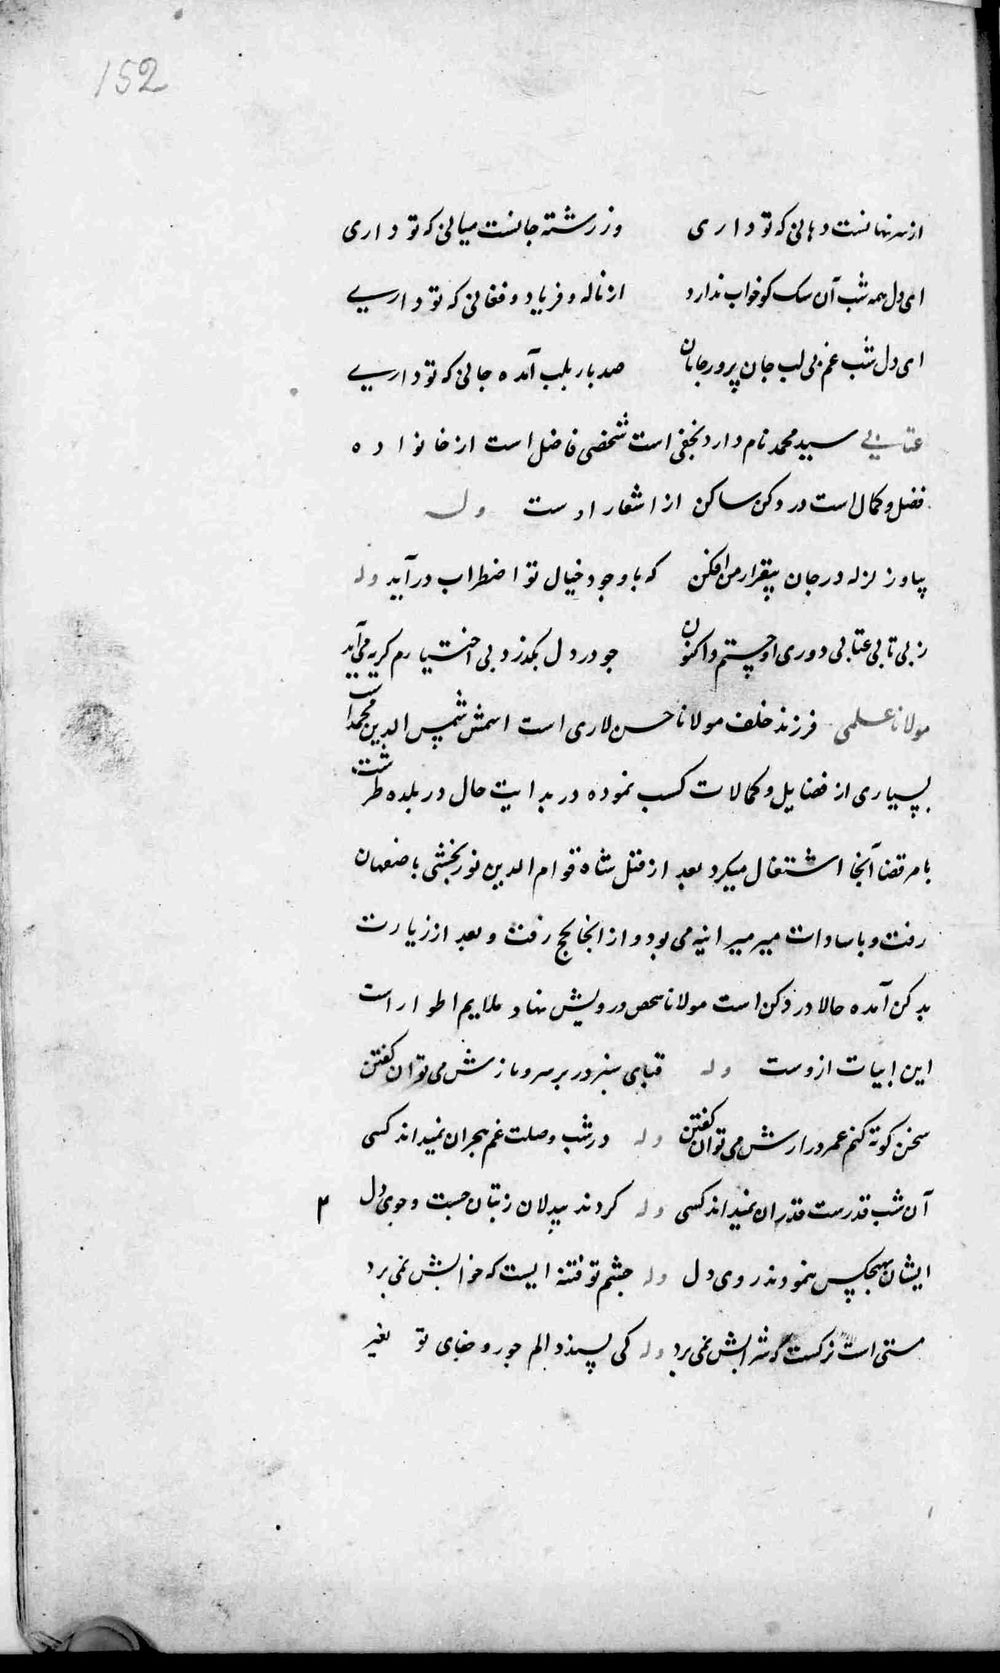 152
از سر نهانست دهانی که تو داری وز رشته جانست میانی که تو داری
ای دل همه شب آن سک کو خواب ندارد از ناله و فریاد و فغانی که تو داریے
ای دل شب غم بی لب جان پرور جانان صد بار بلب آمده جانی که تو داریے
عتابی سید محمد نام دارد نجفی است شخصی فاضل است از خانواده
فضل و کمال است در دکن ساکن از اشعار اوست وله
بیا و زلزله در جان بیقرار من افکن که با وجود خیال تو اضطراب درآید وله
ز بی تابی عتابی دوری او جستم و اکنون چو در دل بکذرد بی اختیارم کریه می آید
مولانا علمی فرزند خلف مولانا حسن لاری است اسمش شمس الدین محمد است
بسیاری از فضایل و کمالات کسب نموده در بدایت حال در بلده طرشت
بامر قضا آنجا اشتغال میکرد بعد از قتل شاه قوام الدین نوربخشی باصفهان
رفت و با سادات میر میرانیه می بود و از انجا بحج رفت و بعد از زیارت
بدکن آمده حالا در دکن است مولانا شخص درویش نهاد ملایم اطوار است
این ابیات ازوست وله قبای سبز در بر سرو نازش می توان کفتن
سخن کوته کنم عمر درازش می توان کفتن وله در شب وصلت غم هجران نمیداند کسی
آن شب قدرست قدر ان نمیداند کسی وله کردند بیدلان ز بتان جست و جوی دل ۲
ایشان بهیچکس ننمودند روی دل وله چشم تو فتنه ایست که خوابش نمی برد
مستی است نرکست که شرابش نمی برد وله کی پسندد الم جور و جفای تو بغیر